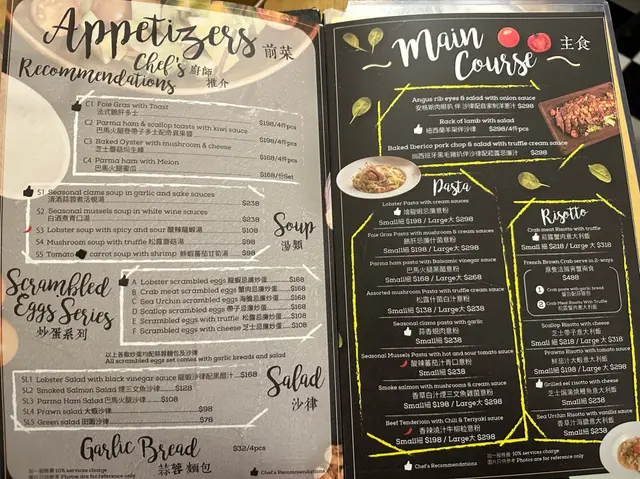 Appetizers 前菜
Chef's Recommendations 廚師推介
C1 Foie Gras with Toast
法式鵝肝多士 $168/4pcs
C2 Parma ham & scallop toasts with kiwi sauce
巴馬火腿帶子多士配奇異果醬 $198/4pcs
C3 Baked Oyster with mushroom & cheese
芝士蘑菇焗生蠔 $168/4pcs
C4 Parma ham with Melon
巴馬火腿蜜瓜 $168/份Set
S1 Seasonal clams soup in garlic and sake sauces
清酒蒜蓉煮蜆湯 $238
S2 Seasonal mussels soup in white wine sauces
白酒煮青口湯 $238
S3 Lobster soup with spicy and sour 酸辣龍蝦湯 $108
S4 Mushroom soup with truffle 松露蘑菇湯 $98
S5 Tomato carrot soup with shrimp 鮮蝦蕃茄甘筍湯 $98
Soup
湯類
Scrambled
Eggs Series
炒蛋系列
A Lobster scrambled eggs 龍蝦忌廉炒蛋 $168
B Crab meat scrambled eggs 蟹肉忌廉炒蛋 $168
C Sea Urchin scrambled eggs 海膽忌廉炒蛋 $168
D Scallop scrambled eggs 帶子忌廉炒蛋 $108
E Scrambled eggs with truffle 松露忌廉炒蛋 $108
F Scrambled eggs with cheese 芝士忌廉炒蛋 $108
以上各款炒蛋均配蒜蓉麵包及沙律
All scrambled eggs set comes with garlic breads and salad
SL1 Lobster Salad with black vinegar sauce 龍蝦沙律配黑醋汁 $168
SL2 Smoked Salmon Salad 煙三文魚沙律 $128
SL3 Parma Ham Salad 巴馬火腿沙律 $108
SL4 Prawn salad 大蝦沙律 $98
SL5 Green salad 田園沙律 $78
Salad
沙律
Garlic Bread $32/4pcs
蒜蓉麵包
加一服務費 10% services charge
圖片只供參考 Photos are for reference only
Chef's Recommendations
Main
Course 主食
Angus rib eyes & salad with onion sauce
安格斯肉眼扒伴沙律配自家制洋蔥汁 $298
Rack of lamb with salad
紐西蘭羊架伴沙律 $298
Baked Iberico pork chop & salad with truffle cream sauce
焗西班牙黑毛豬扒伴沙律配松露忌廉汁 $298
Pasta
Lobster Pasta with cream sauce
燴龍蝦忌廉意粉
Small細 $198 / Large大 $298
Foie Gras mushroom pasta with cream sauces
鵝肝忌廉什菌意粉
Small細 $198 / Large大 $298
Parma ham pasta with Balsamic vinegar sauce
巴馬火腿黑醋意粉
Small細 $168 / Large大 $268
Assorted mushroom Pasta with truffle cream sauce
松露什菌白汁意粉
Small細 $138 / Large大 $238
Seasonal clams pasta with garlic
蒜香蜆肉意粉
Small細 $238
Seasonal Mussels Pasta with hot and sour tomato sauce
酸辣蕃茄汁青口意粉
Small細 $238
Smoke salmon with mushrooms & cream sauce
香草白汁煙三文魚雜菌意粉
Small細 $198 / Large大 $298
Beef Tenderloin with Chili & Teriyaki sauce
香辣燒汁牛柳粒意粉
Small細 $198 / Large大 $298
Risotto
Crab meat Risotto with truffle
松露蟹肉意大利飯
Small細 $218 / Large大 $318
French Brown Crab serve in 2-ways
原隻法國黃蟹兩食
$488
1 Crab game with garlic bread
2 Crab Meat Risotto With Truffle
松露蟹肉意大利飯
Scallop Risotto with cheese
芝士帶子意大利飯
Small細 $218 / Large大 $318
Prawns Risotto with tomato sauce
鮮茄汁大蝦意大利飯
Small細 $198 / Large大 $298
Grilled eel risotto with cheese
芝士焗蒲燒鰻魚意大利飯
Small細 $238
Sea Urchin Risotto with vanilla sauce
香草汁海膽意大利飯
Small細 $238
Chef's Recommendations
加一服務費 10% services charge
圖片只供參考 Photos are for reference only